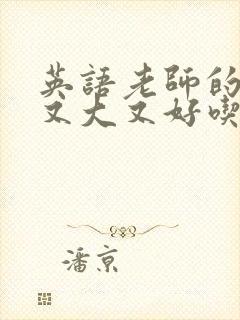 英語老師的
又大又好喫
潘京